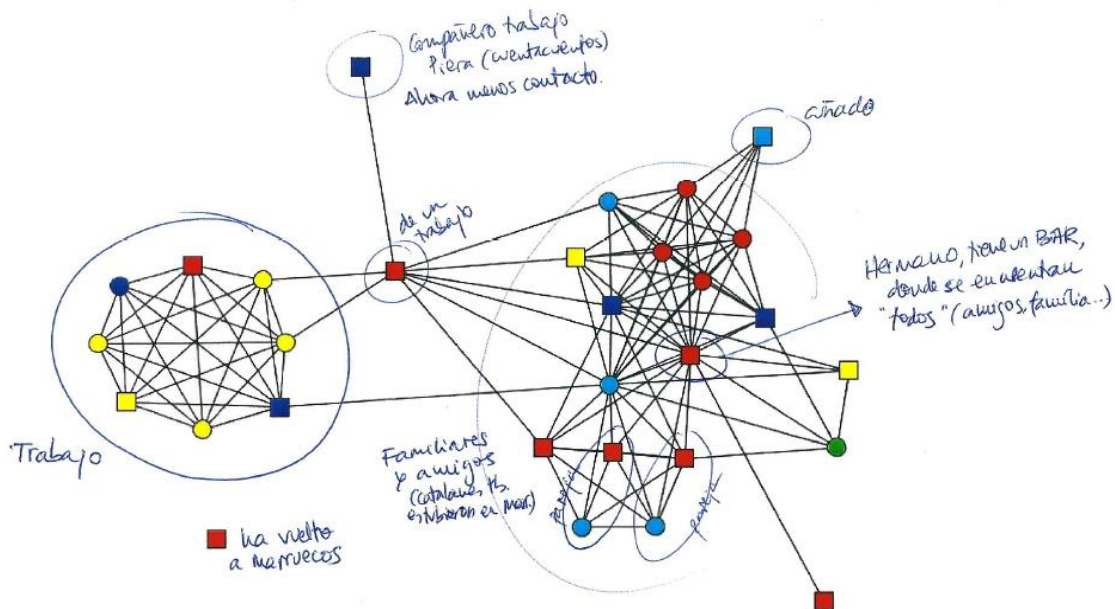 Compañero trabajo
Piera (cuentacuentos)
Ahora menos contacto.
cuñado
de un
trabajo
Hermano, tiene un BAR,
donde se encuentran
"todos" (amigos, família...)
Trabajo
Familiares
y amigos
(catalanes tb.
estubieron en Marr.)
pareja
pareja
ha vuelto
a marruecos